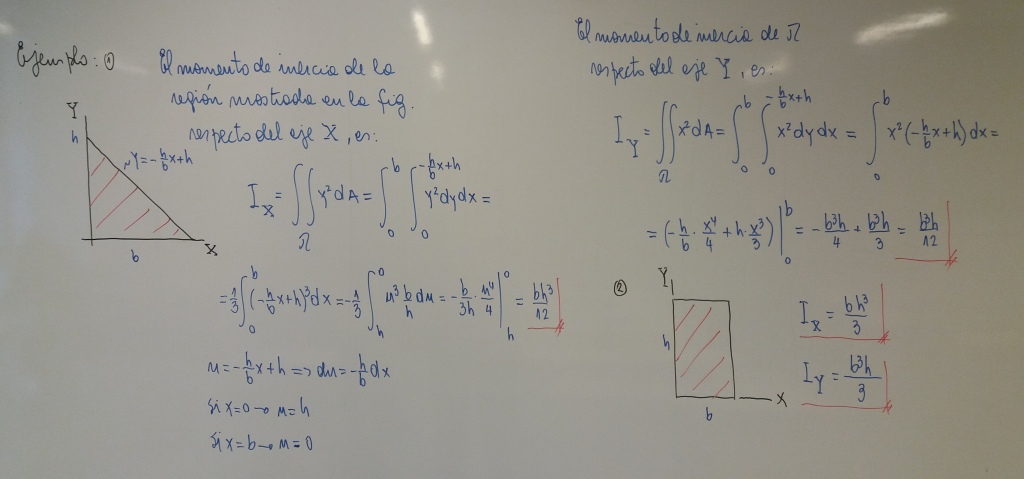 Ejemplo: ①
El momento de inercia de la
región mostrada en la fig.
respecto del eje X, es:
Y
h
Y=-h/b x+h
X
b
I_X = ∬_Ω y²dA = ∫_0^b ∫_0^{-h/b x+h} y²dydx =
= 1/3 ∫_0^b (-h/b x+h)³dx = -1/3 ∫_h^0 u³ b/h du = -b/3h · u⁴/4 |_h^0 = bh³/12
u = -h/b x+h => du = -h/b dx
Si x=0 → u=h
Si x=b → u=0
El momento de inercia de Ω
respecto del eje Y, es:
I_Y = ∬_Ω x²dA = ∫_0^b ∫_0^{-h/b x+h} x²dydx = ∫_0^b x²(-h/b x+h)dx =
= (-h/b · x⁴/4 + h · x³/3) |_0^b = -b³h/4 + b³h/3 = b³h/12
②
Y
h
b
X
I_X = bh³/3
I_Y = b³h/3